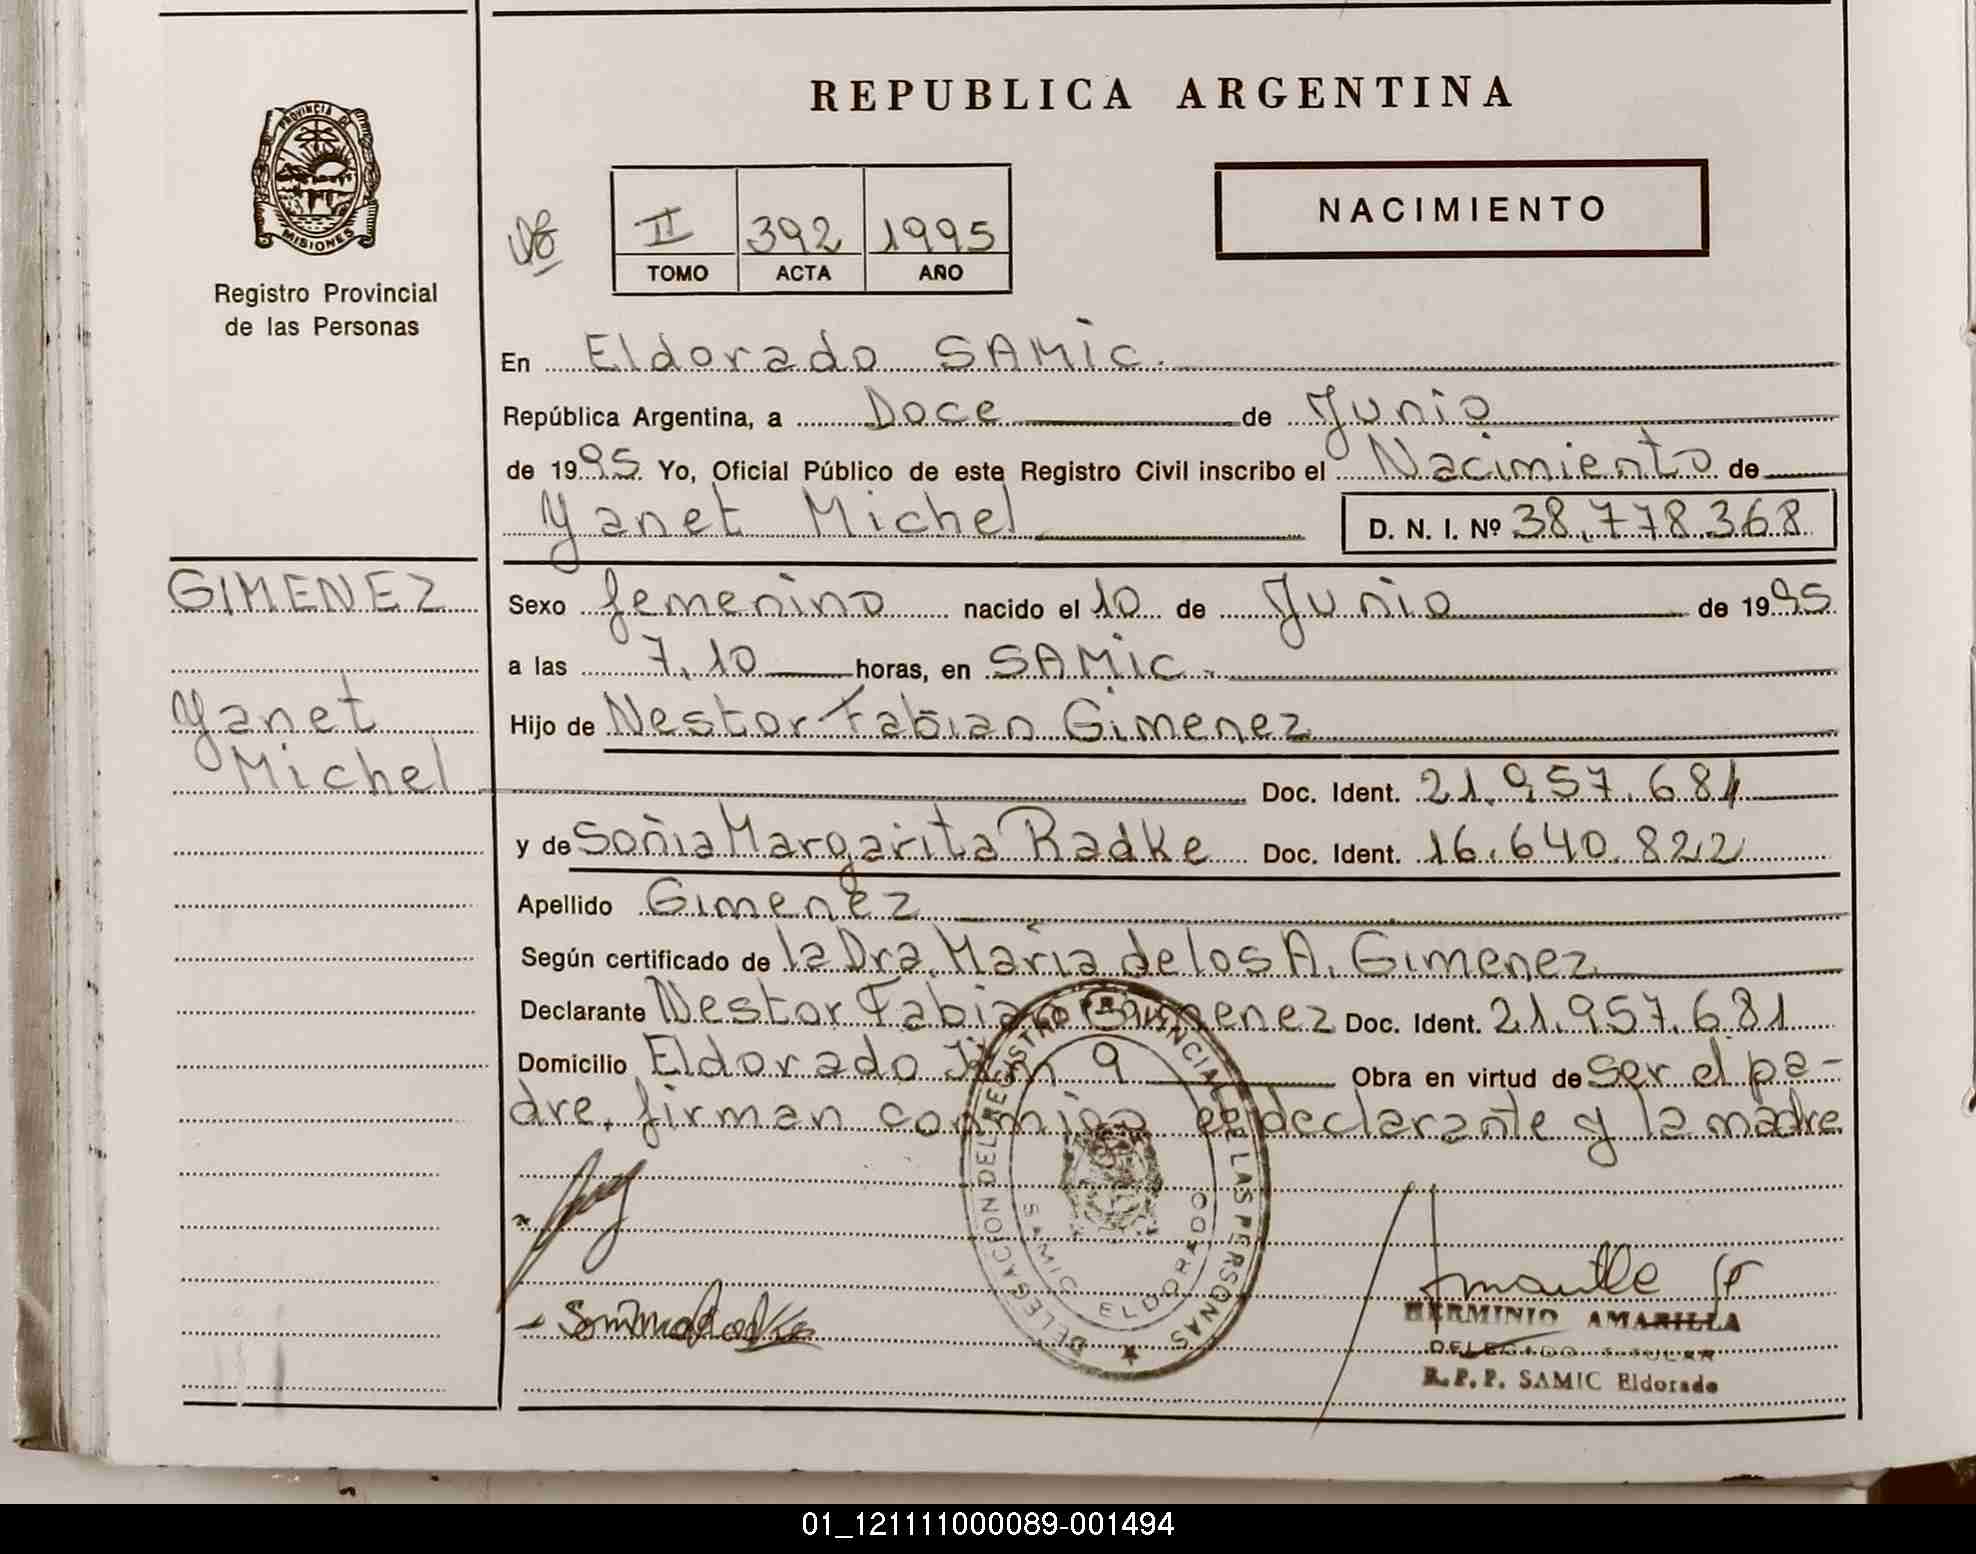 REPUBLICA ARGENTINA
PROVINCIA DE
MISIONES
Registro Provincial
de las Personas
II 392 1995
TOMO ACTA AÑO
NACIMIENTO
En Eldorado SAMIC.
República Argentina, a Doce de Junio
de 1995 Yo, Oficial Público de este Registro Civil inscribo el Nacimiento de
Yanet Michel D. N. I. Nº 38.778.368
GIMENEZ
Yanet
Michel
Sexo femenino nacido el 10 de Junio de 1995
a las 7.10 horas, en SAMIC.
Hijo de Nestor Fabian Gimenez
Doc. Ident. 21.957.681
y de Soñia Margarita Radke Doc. Ident. 16.640.822
Apellido Gimenez
Según certificado de la Dra. Maria de los A. Gimenez
Declarante Nestor Fabian Gimenez Doc. Ident. 21.957.681
Domicilio Eldorado Km 9 Obra en virtud de ser el pa-
dre, firman conmigo el declarante y la madre
DELEGACION DEL REGISTRO PROVINCIAL DE LAS PERSONAS
SAMIC ELDORADO
HERMINIO AMARILLA
DELEGADO TITULAR
R.P.P. SAMIC Eldorado
01_121111000089-001494